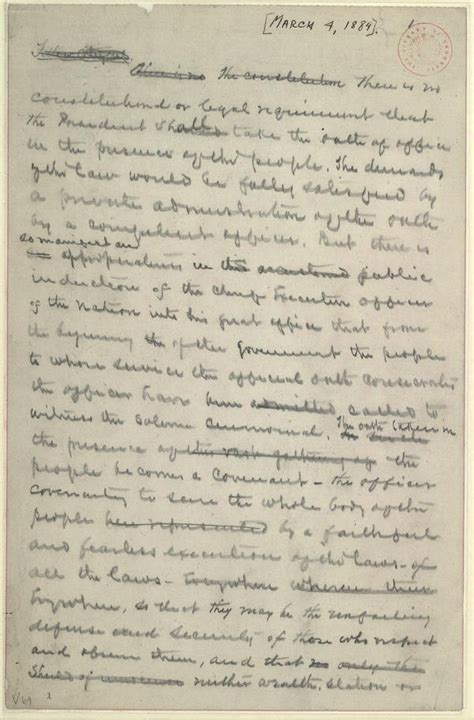 [MARCH 4, 1889]. 1
Fellow Citizens.
There is no The constitution There is no
constitutional or legal requirement that
the President shall take the oath of office
in the presence of the people. The demands
of the law would be fully satisfied by
a private administration of the oath
by a competent officer. But there is
so manifest an
appropriateness in the accustomed public
induction of the Chief Executive officer
of the Nation into his great office that from
the beginning of the Government the people
to whose service the official oath consecrates
the officer have been admitted called to
witness the solemn ceremonial. The oath taken in
the presence of the vast gathering of the
people becomes a covenant - the officer
covenants to serve the whole body of the
people here represented by a faithful
and fearless execution of the laws - of
all the laws - Everywhere
Everywhere, so that they may be the unfailing
defense and security of those who respect
and observe them, and that no only the
Shield of neither wealth, station or
V69 2